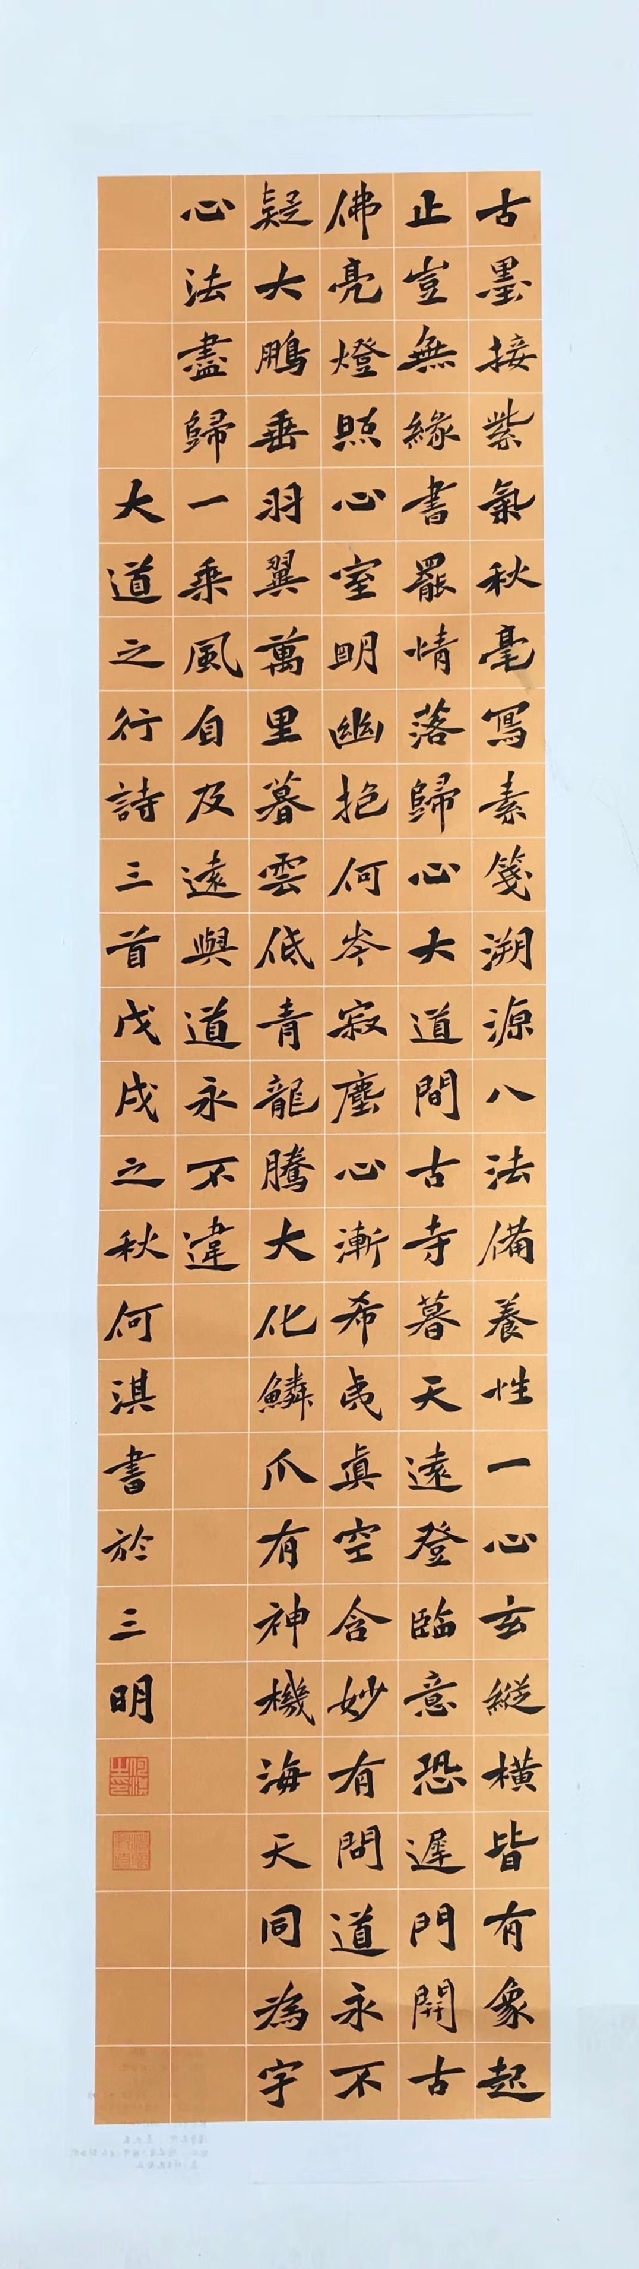 古墨接紫氣秋毫寫素箋溯源八法備養性一心玄縱橫皆有象起
止豈無緣書罷情落歸心大道間古寺暮天遠登臨意恐遲門開古
佛亮燈照心室明幽抱何岑寂塵心漸希夷真空含妙有問道永不
疑大鵬垂羽翼萬里暮雲低青龍騰大化鱗爪有神機海天同為宇
心法盡歸一乘風自及遠與道永不違
大道之行詩三首戊戌之秋何淇書於三明